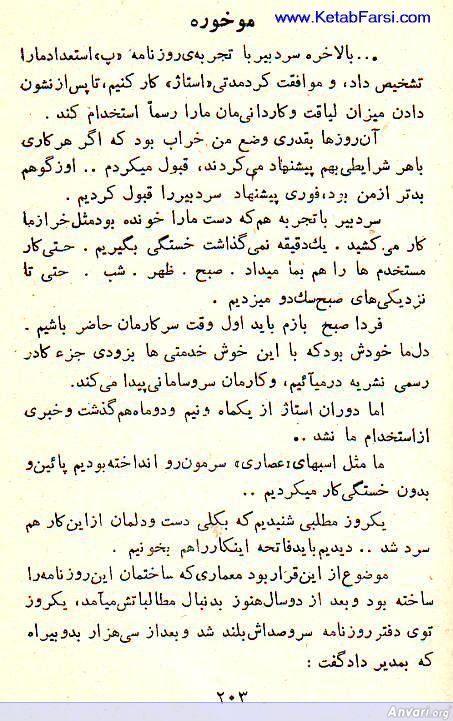 www.KetabFarsi.com
موخوره
... بالاخره سردبیر با تجربه‌ی روزنامه «پ» استعداد مارا
تشخیص داد، و موافقت کرد مدتی «استاژ» کار کنیم، تا پس از نشون
دادن میزان لیاقت و کاردانی‌مان مارا رسماً استخدام کند .
آن‌روزها بقدری وضع من خراب بود که اگر هر کاری
باهر شرایطی بهم پیشنهاد می‌کردند، قبول میکردم .. اوزگو هم
بدتر از من بود، فوری پیشنهاد سردبیر را قبول کردیم .
سردبیر با تجربه هم که دست مارا خونده بود مثل خر از ما
کار می‌کشید . یك‌دقیقه نمی‌گذاشت خستگی بگیریم . حتی کار
مستخدم ها را هم بما میداد . صبح . ظهر . شب . حتی تا
نزدیکی‌های صبح سك‌دو میزدیم .
فردا صبح بازم باید اول وقت سر کارمان حاضر باشیم .
دل‌ما خودش بود که با این خوش خدمتی ها بزودی جزء کادر
رسمی نشریه درمیآئیم، و کارمان سر و سامانی پیدا می‌کند.
اما دوران استاژ از یکماه و نیم و دو ماه هم گذشت و خبری
از استخدام ما نشد ..
ما مثل اسبهای «عصاری» سرمون‌رو انداخته بودیم پائین و
بدون خستگی کار میکردیم ..
یکروز مطلبی شنیدیم که بکلی دست و دلمان از این کار هم
سرد شد .. دیدیم باید فاتحه اینکار را هم بخونیم .
موضوع از این قرار بود معماری که ساختمان این روزنامه را
ساخته بود و بعد از دو سال هنوز بدنبال مطالباتش میآمد، یکروز
توی دفتر روزنامه سر و صداش بلند شد و بعد از سی‌هزار بد و بیراه
که بمدیر داد گفت :
۲۰۳
Anvari.org